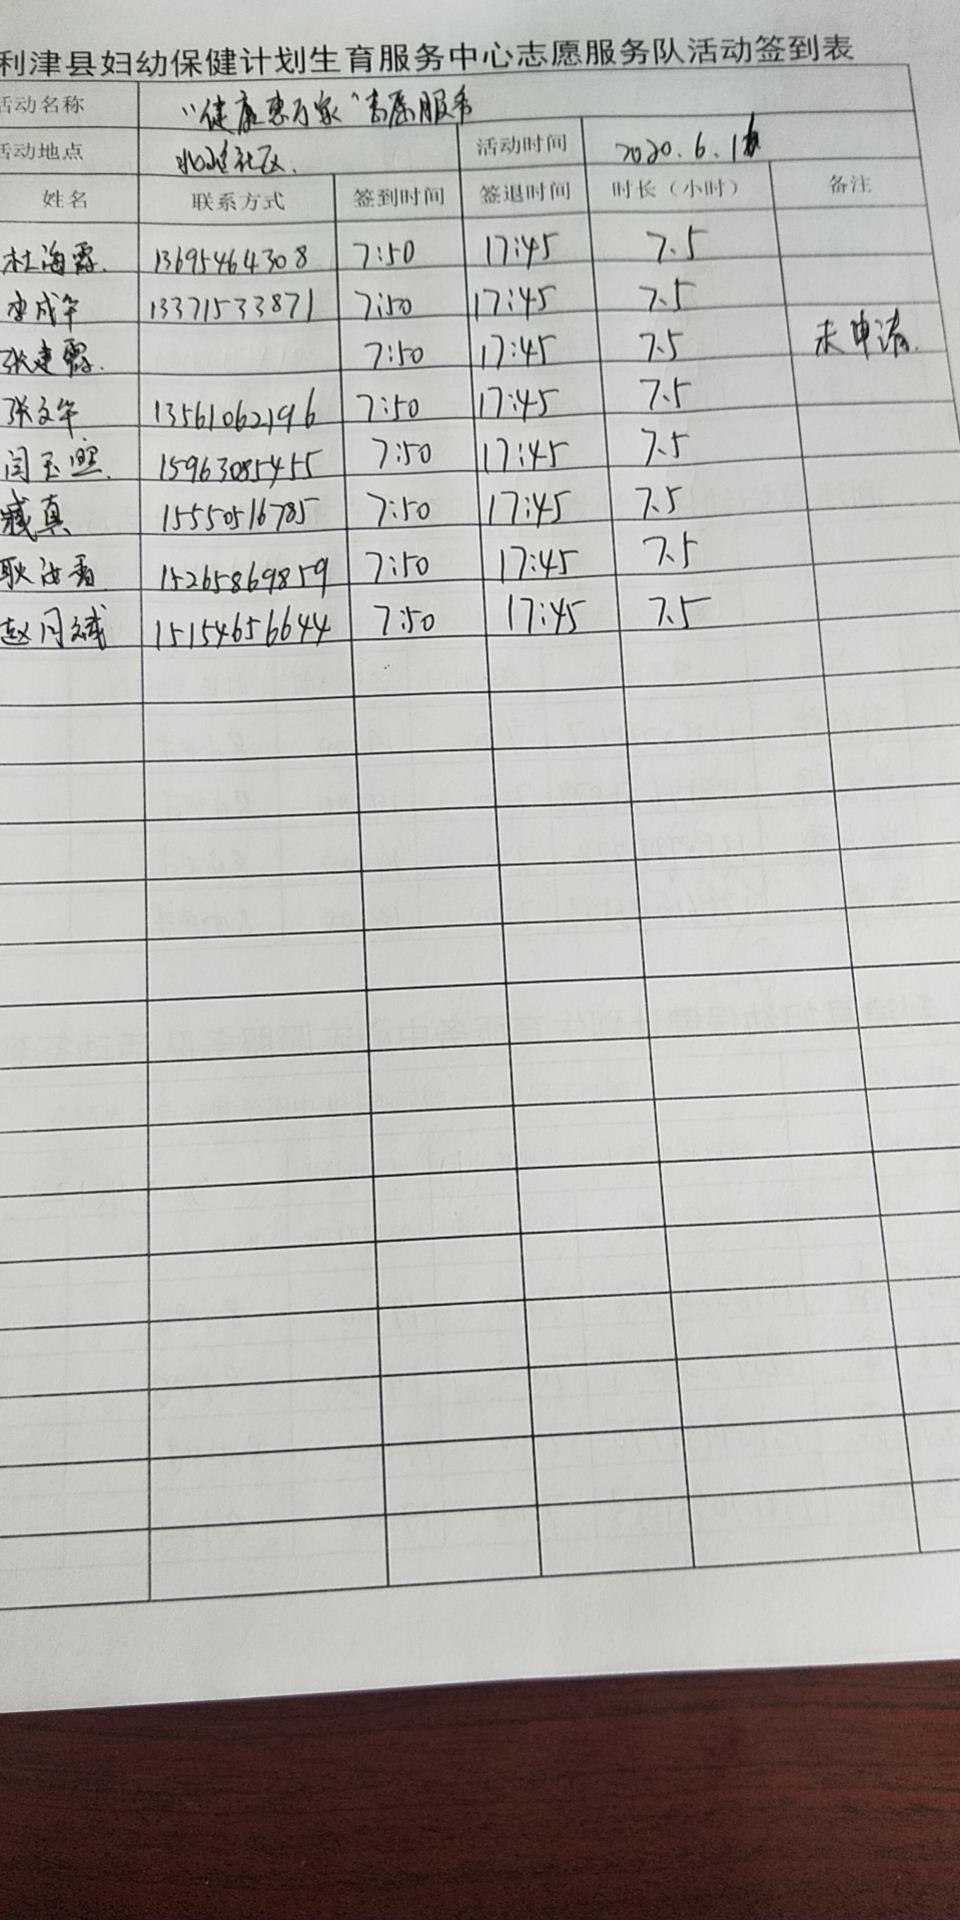 利津县妇幼保健计划生育服务中心志愿服务队活动签到表
活动名称 “健康惠万家”志愿服务
活动地点 社区. 活动时间 2020.6.1
姓名 联系方式 签到时间 签退时间 时长（小时） 备注
杜海霞 13695464308 7:50 17:45 7.5
李成华 13371533871 7:50 17:45 7.5
张建霞 7:50 17:45 7.5 未申请.
张文华 13561062196 7:50 17:45 7.5
闫玉照 15963085455 7:50 17:45 7.5
臧真 15550516785 7:50 17:45 7.5
耿海香 15265869859 7:50 17:45 7.5
赵月斌 15154656644 7:50 17:45 7.5